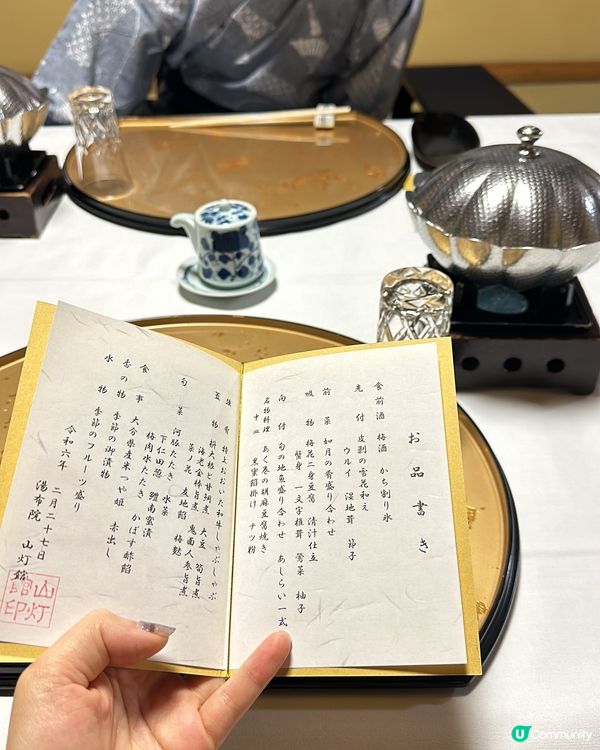 お品書き
食前酒 梅酒 かち割り氷
先付 皮剥の雪花和え
ウルイ 湿地茸 節子
前菜 如月の肴盛り合わせ
吸物 梅花二身豆腐 清汁仕立
蟹身 一文字椎茸 鶯菜 柚子
向付 旬の地魚盛り合わせ あしらい一式
名物料理 あく巻の胡麻豆腐焼き
中皿 黒蜜餡掛け ナツ粉
強肴 特上おおいた和牛しゃぶしゃぶ
蓋物 桝大根と甘鯛煮 大豆 筍旨煮
海老金柿旨煮 鬼面人参旨煮
菜ノ花 友地餡 梅麩
旬菜 河豚たたき 水菜
下仁田葱 鱧南蛮漬
梅肉水たたき かぼす酢餡
食事 大分県産米つや姫 赤出し
香の物 季節の御漬物
水物 季節のフルーツ盛り
令和六年 二月二十七日
湯布院 山灯館
山灯館印
U Community